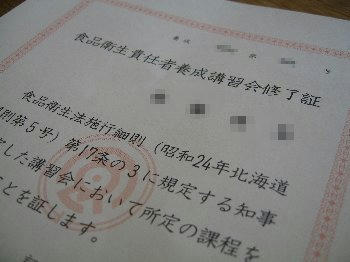 食品衛生責任者養成講習会修了証
食品衛生法施行細則（昭和24年北海道
則第5号）第17条の3に規定する知事
した講習会において所定の課程を
ことを証します。